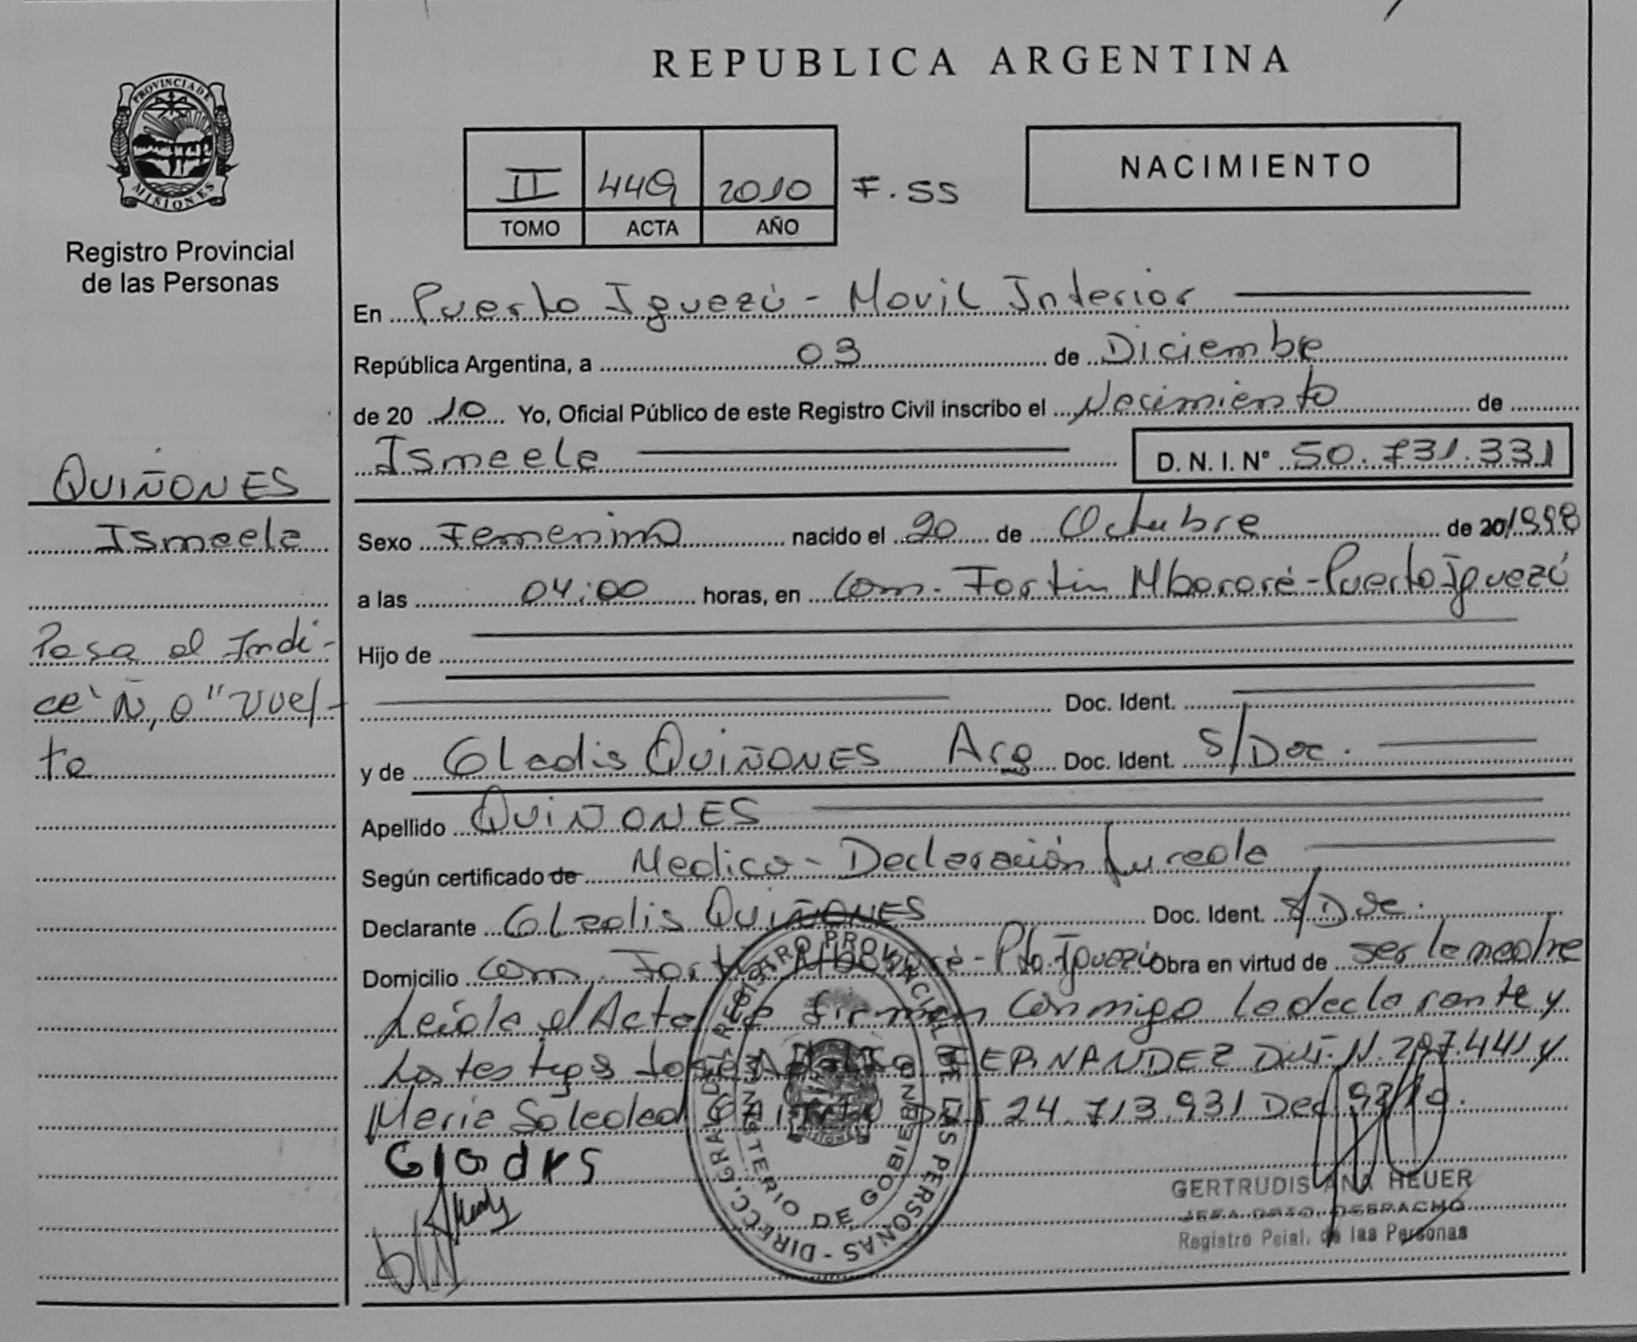 PROVINCIA DE
MISIONES
Registro Provincial
de las Personas
QUIÑONES
Ismaela
Pasa al Indi-
ce "Ñ, O" vuel-
ta
REPUBLICA ARGENTINA
II 449 2010 F. 55
TOMO ACTA AÑO
NACIMIENTO
En Puerto Iguazú - Movil Interior
República Argentina, a 03 de Diciembre
de 20 10 Yo, Oficial Público de este Registro Civil inscribo el Nacimiento de
Ismaela D. N. I. N° 50.731.331
Sexo Femenino nacido el 20 de Octubre de 20/1998
a las 04:00 horas, en Com. Fortin Mbororé - Puerto Iguazú
Hijo de
Doc. Ident.
y de Gladis QUIÑONES Arg Doc. Ident. S/Doc.
Apellido QUIÑONES
Según certificado de Medico - Declaración Jurada
Declarante Gladis QUIÑONES Doc. Ident. S/Doc.
Domicilio Com. Fortin Mbororé - Pto. Iguazú Obra en virtud de ser la madre
Leída el Acta firman conmigo la declarante y
los testigos José HERNANDEZ y
Maria Soledad 24.713.931
Gladys
DIRECC. GRAL. DEL REGISTRO PROVINCIAL DE LAS PERSONAS -
MINISTERIO DE GOBIERNO
MISIONES
GERTRUDIS ANA HEUER
JEFA DPTO. DESPACHO
Registro Pcial. de las Personas